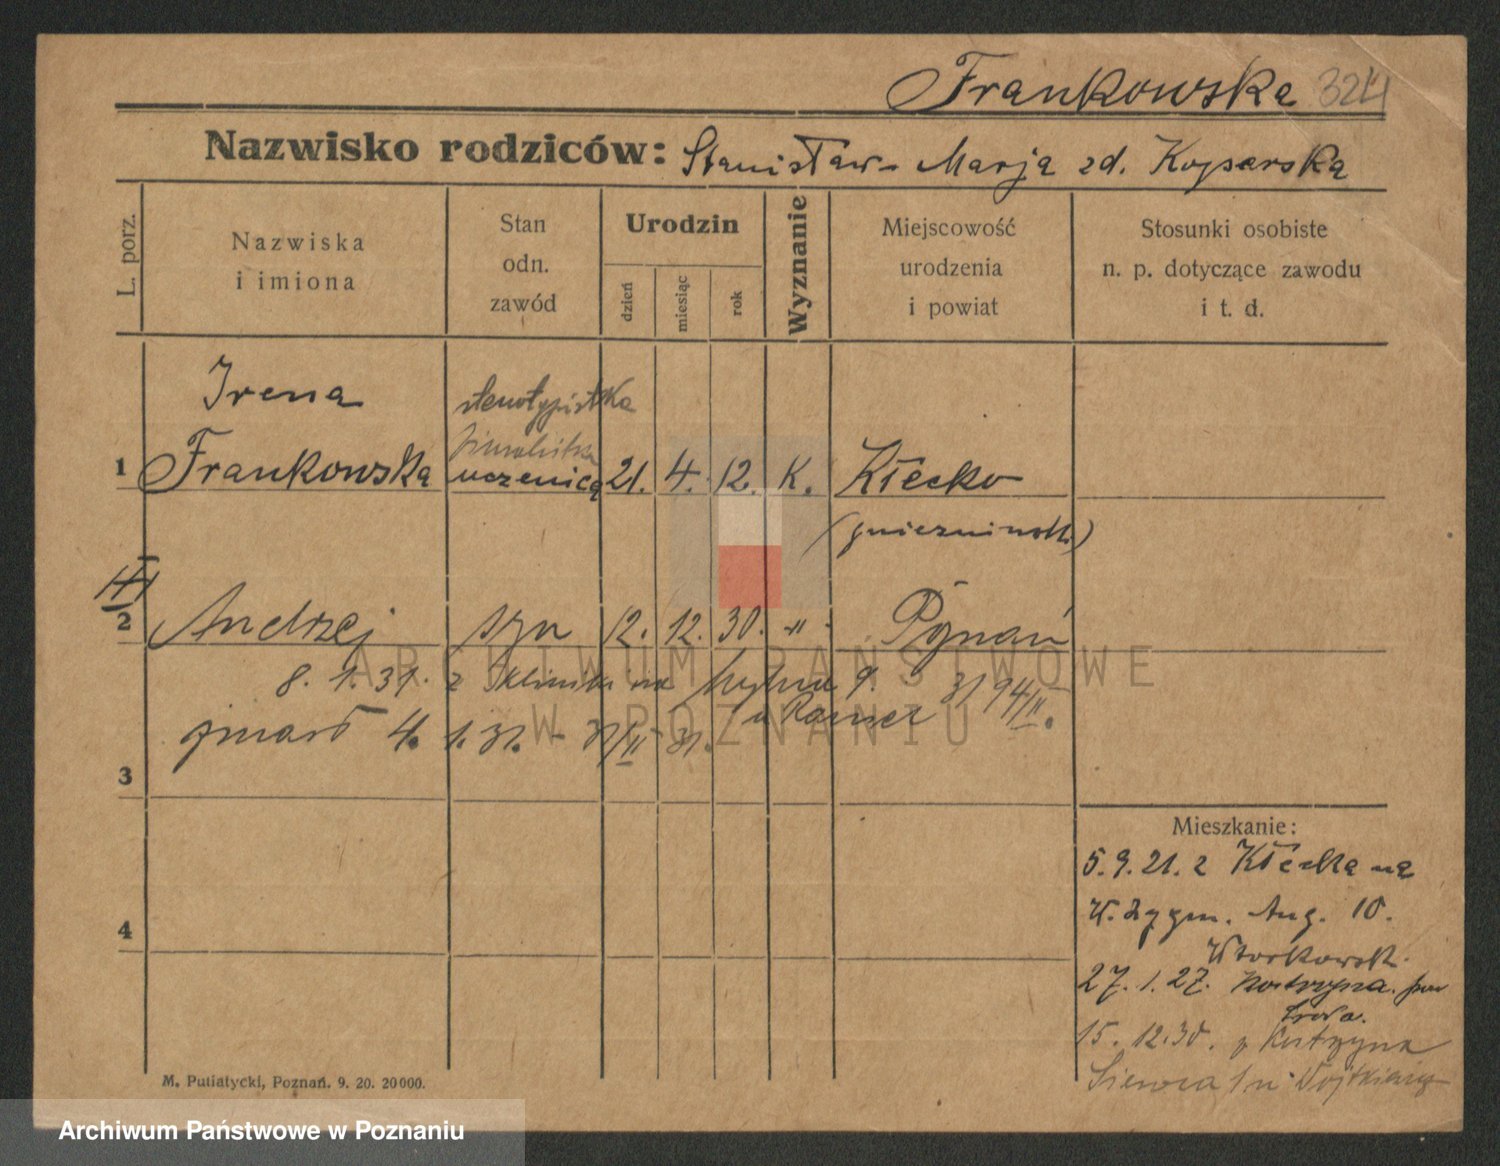 Frankowska 324
Nazwisko rodziców: Stanisław - Marja zd. Kopserska
L. porz.
Nazwiska
i imiona
Stan
odn.
zawód
Urodzin
dzień
miesiąc
rok
Wyznanie
Miejscowość
urodzenia
i powiat
Stosunki osobiste
n. p. dotyczące zawodu
i t. d.
Irena stenotypistka
1 Frankowska uczenica 21. 4. 12. K. Kłecko
(gnieznińsk.)
2 Andrzej syn 12. 12. 30. -"- Poznań
8. 1. 31. z kliniki na
zmarł 4. 1. 31.
3
Mieszkanie:
5.9.21. z Kłecka na
W. Zygm. Aug. 10.
Wtorkowsk.
27.1.27. Kostrzyna. pow
Środa.
15.12.30. z Kostrzyna
Siewca
4
M. Putiatycki, Poznań. 9. 20. 20000.
ARCHIWUM PAŃSTWOWE
W POZNANIU
Archiwum Państwowe w Poznaniu